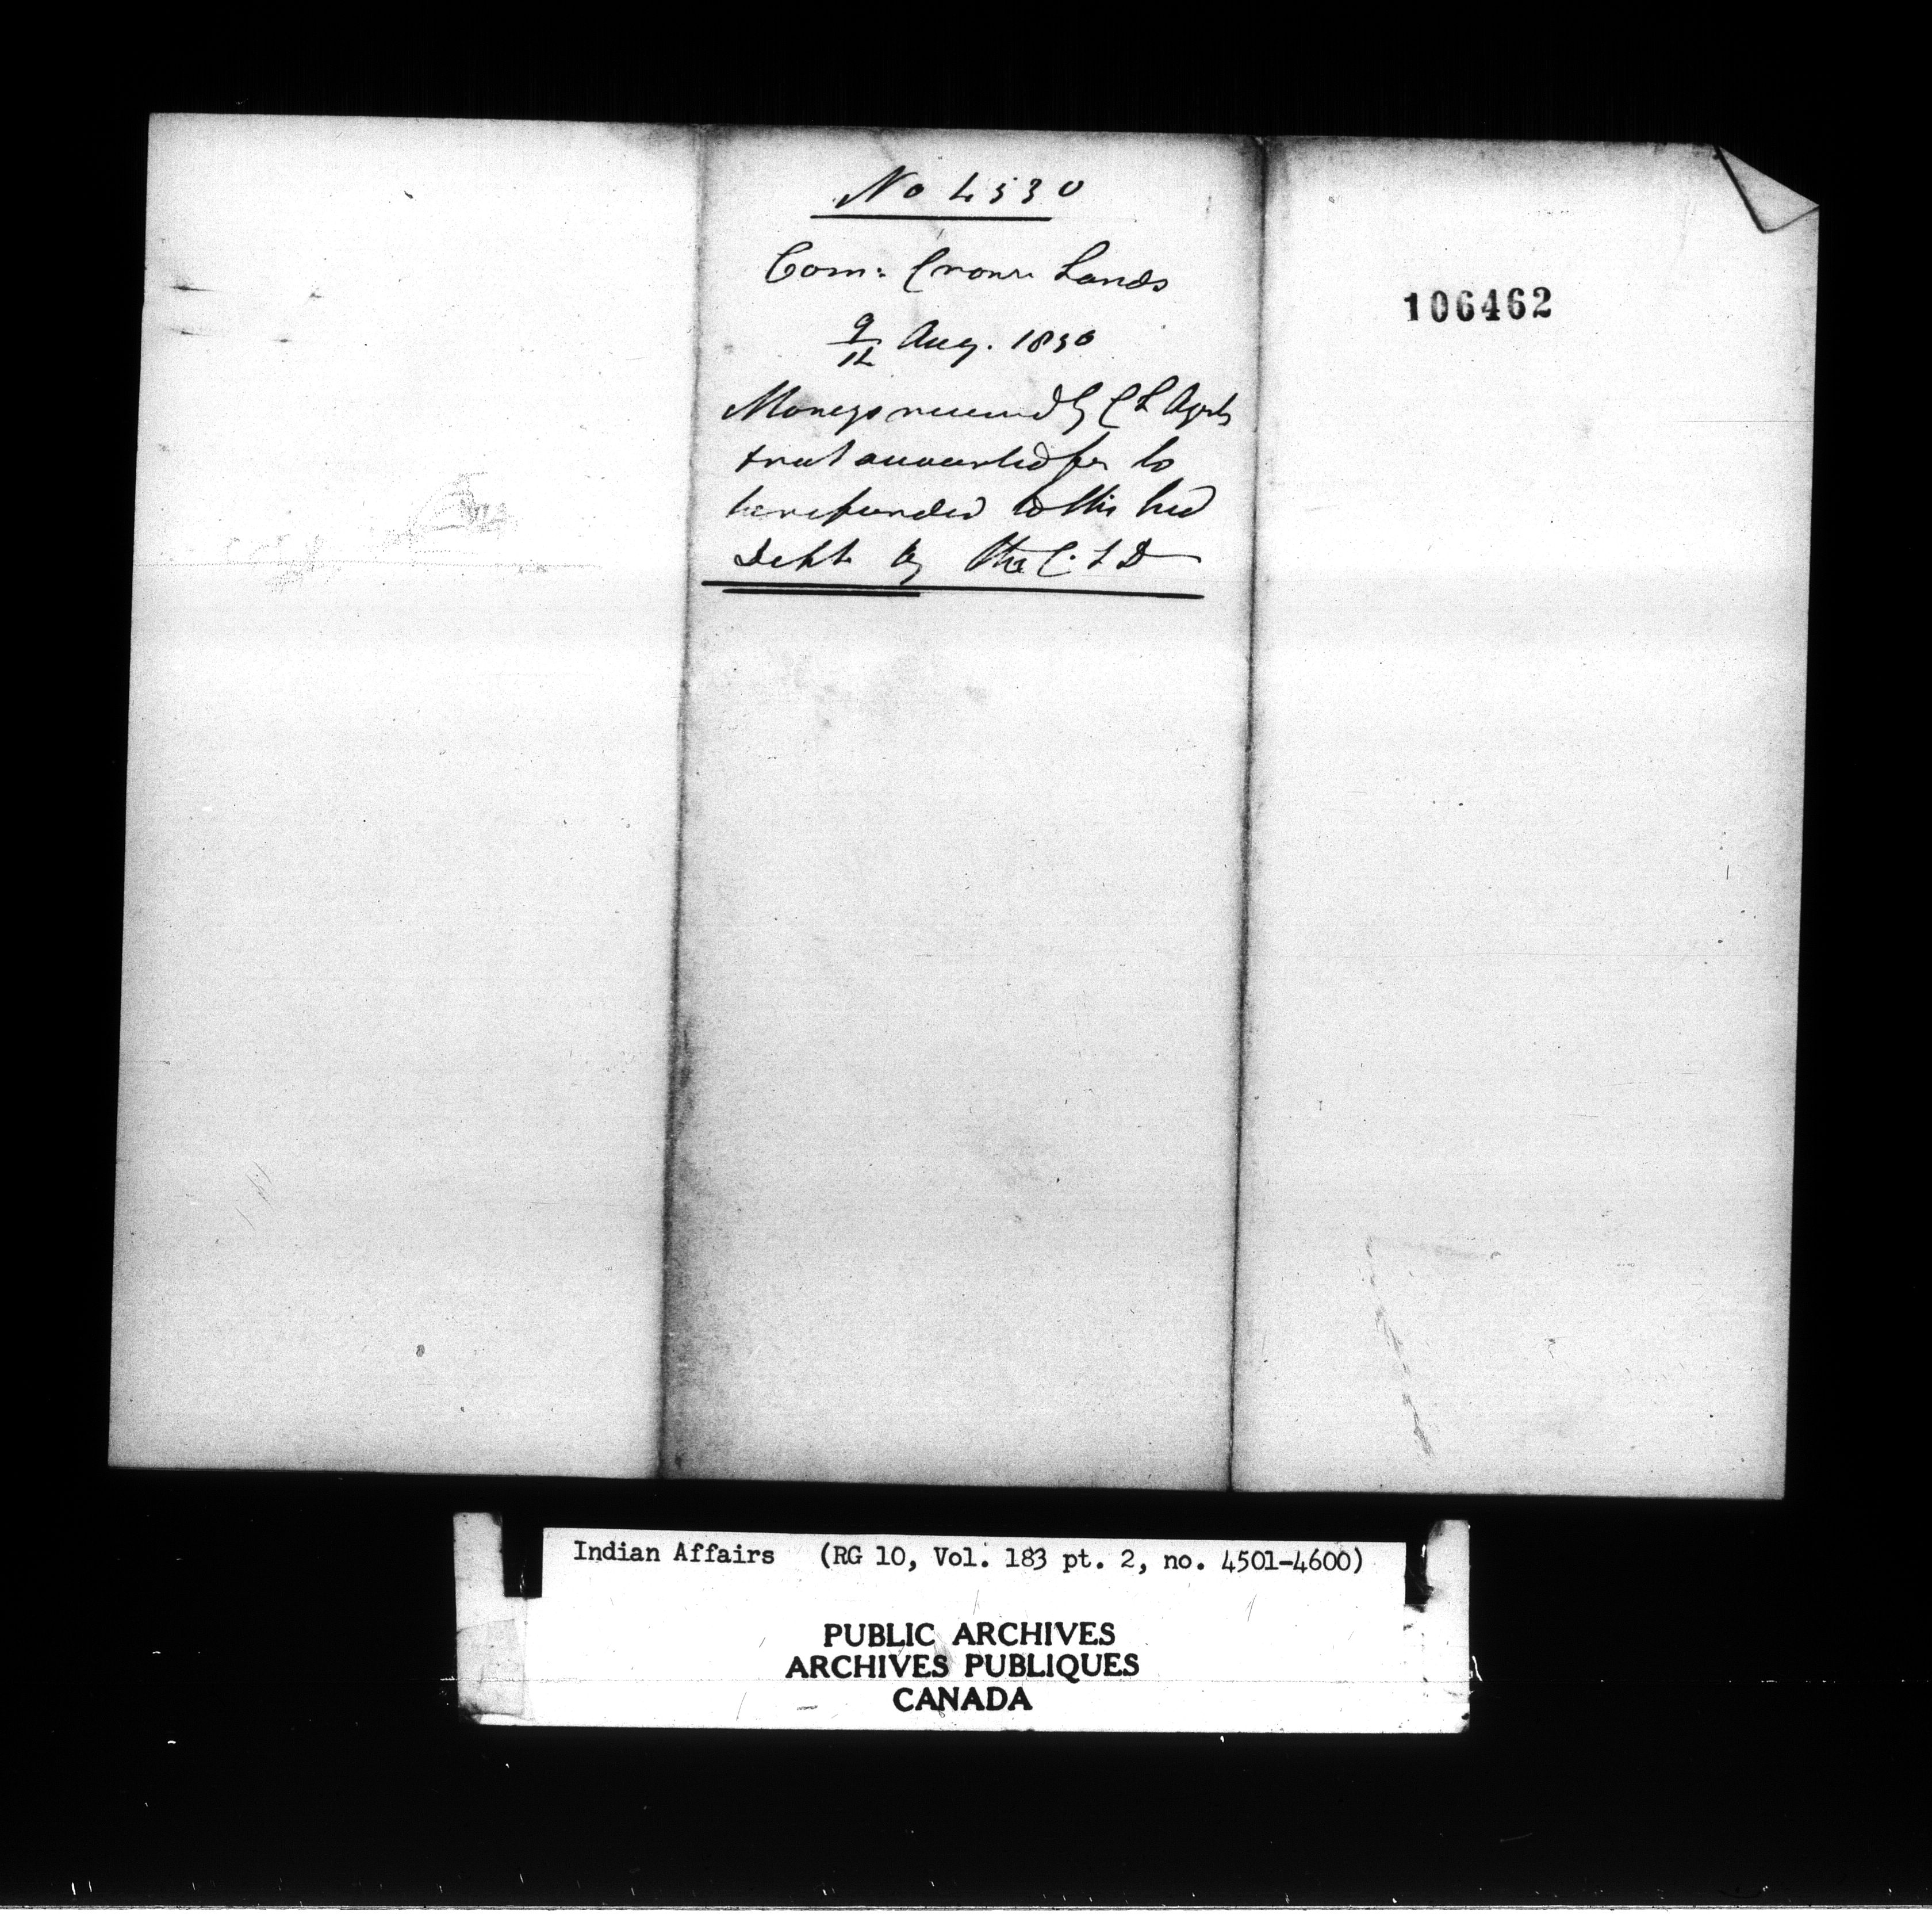 No 4530
Com: Crown Lands
9/12 Aug. 1850
Moneys received by C L Agents
& not accounted for to
be refunded to the Ind
Dept by the C. L D
106462
Indian Affairs (RG 10, Vol. 183 pt. 2, no. 4501-4600)
PUBLIC ARCHIVES
ARCHIVES PUBLIQUES
CANADA